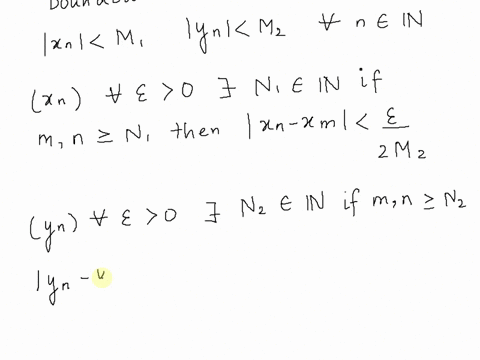 |xn| < M₁ |yn| < M₂ ∀ n ∈ ℕ
(xn) ∀ ε > 0 ∃ N₁ ∈ ℕ if
m, n ≥ N₁ then |xn - xm| < ε / 2M₂
(yn) ∀ ε > 0 ∃ N₂ ∈ ℕ if m, n ≥ N₂
|yn -